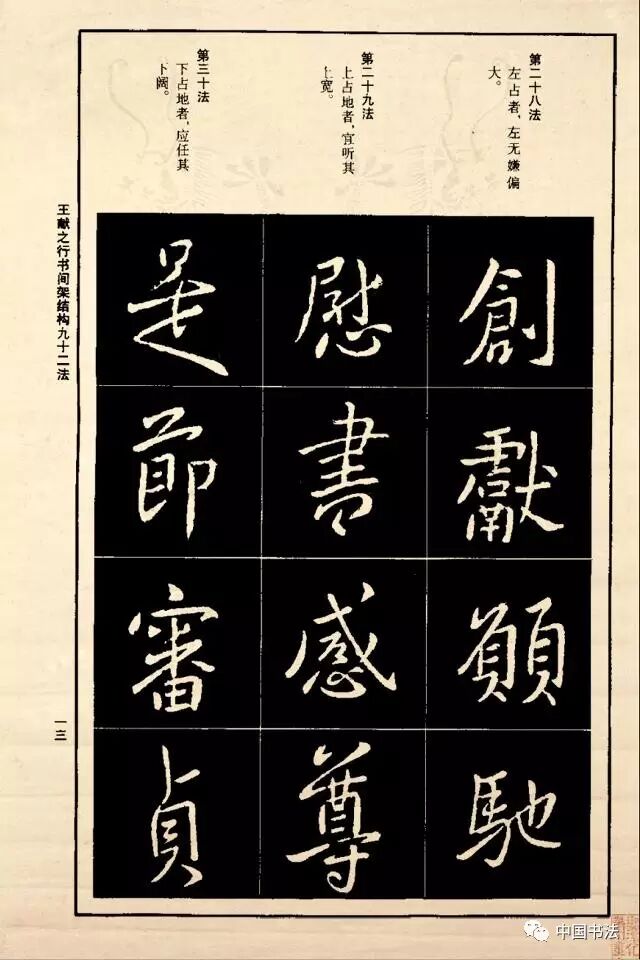 第二十八法
左占者，左无嫌偏
大。
創
獻
願
馳
第二十九法
上占地者，宜听其
上宽。
慰
書
感
尊
第三十法
下占地者，应任其
下阔。
是
節
審
貞
王献之行书间架结构九十二法
一三
中国书法